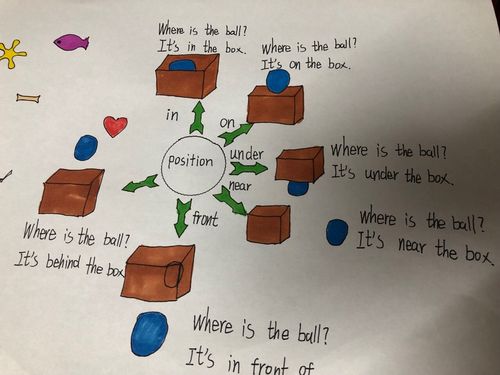 Where is the ball?
It's in the box.
Where is the ball?
It's on the box.
in
on
position
under
near
front
Where is the ball?
It's under the box.
Where is the ball?
It's near the box.
Where is the ball?
It's behind the box
Where is the ball?
It's in front of